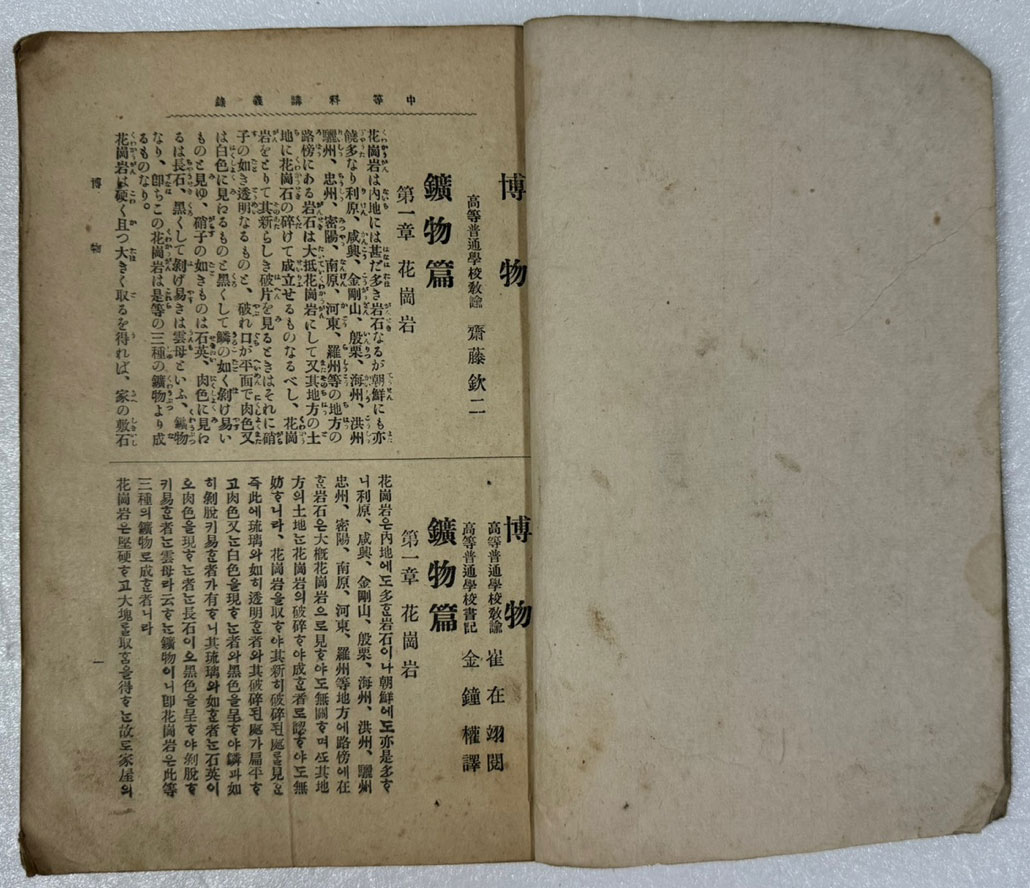 中等科講義錄
博物
高等普通學校敎諭 齋藤欽二
鑛物篇
第一章 花崗岩
花崗岩は內地には甚だ多き岩石なるが朝鮮にも亦
饒多なり利原、咸興、金剛山、殷栗、海州、洪州
驪州、忠州、密陽、南原、河東、羅州等の地方の
路傍にある岩石は大抵花崗岩にして又其地方の土
地に花崗石の碎けて成立せるものなるべし、花崗
岩をとりて其新らしき破片を見るときはそれに硝
子の如き透明なるものと、破れ口が平面で肉色又
は白色に見わるものと黑くして鱗の如く剝げ易い
ものと見ゆ、硝子の如きものは石英、肉色に見わ
るは長石、黑くして剝げ易きは雲母といふ、鑛物
なり、卽ちこの花崗岩は是等の三種の鑛物より成
るものなり。
花崗岩は硬く且つ大きく取るを得れば、家の敷石
博物
高等普通學校敎諭 崔在翊閱
高等普通學校書記 金鐘權譯
鑛物篇
第一章 花崗岩
花崗岩은內地에도多ᄒᆞᆫ岩石이나朝鮮에도亦是多ᄒᆞ
니利原、咸興、金剛山、殷栗、海州、洪州、驪州
忠州、密陽、南原、河東、羅州等地方에路傍에在
ᄒᆞᆫ岩石은大槪花崗岩으로見ᄒᆞ야도無關ᄒᆞ며ᄯᅩ其地
方의土地ᄂᆞᆫ花崗岩의破碎ᄒᆞ야成ᄒᆞᆫ者로認ᄒᆞ야도無
妨ᄒᆞ니라、花崗岩을取ᄒᆞ야其新히破碎된處를見ᄒᆞᆫ
즉此에琉璃와如히透明ᄒᆞᆫ者와其破碎된處가扁平ᄒᆞ
고肉色又ᄂᆞᆫ白色을現ᄒᆞᄂᆞᆫ者와黑色을呈ᄒᆞ야鱗과如
히剝脫키易ᄒᆞᆫ者가有ᄒᆞ니其琉璃와如ᄒᆞᆫ者ᄂᆞᆫ石英이
오肉色을現ᄒᆞᄂᆞᆫ者ᄂᆞᆫ長石이오黑色을呈ᄒᆞ야剝脫ᄒᆞ
키易ᄒᆞᆫ者ᄂᆞᆫ雲母라云ᄒᆞᄂᆞᆫ鑛物이니卽花崗岩은此等
三種의鑛物로成ᄒᆞᆫ者니라
花崗岩은堅硬ᄒᆞ고大塊를取ᄒᆞᆷ을得ᄒᆞᄂᆞᆫ故로家屋의
博物
一